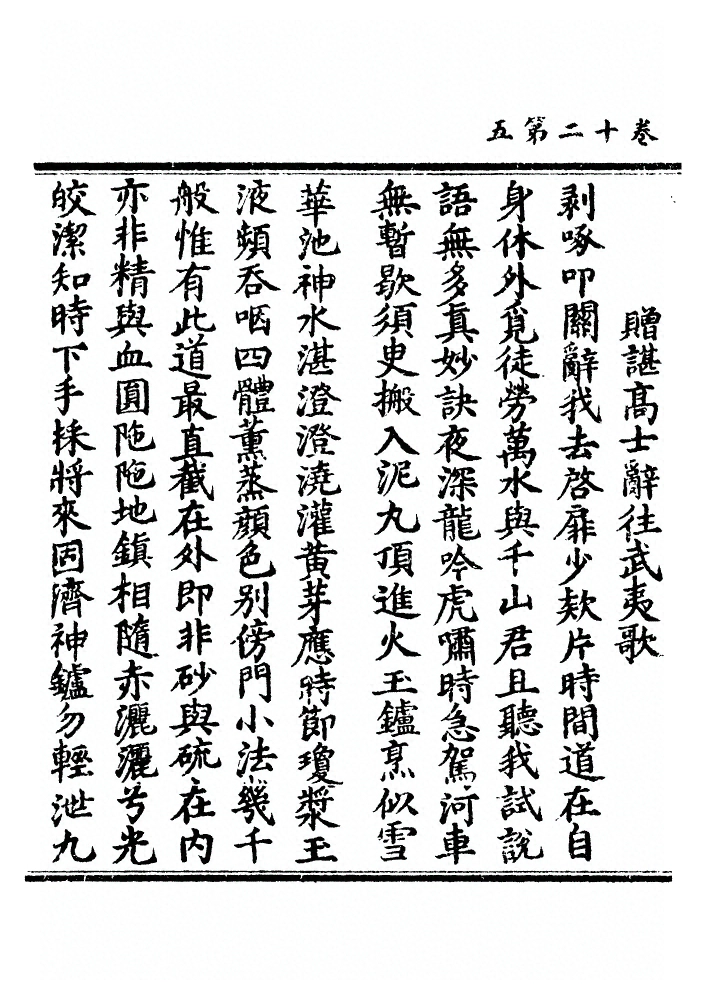 卷十二第五
贈諶高士辭往武夷歌
剥啄叩關辭我去啓扉少欵片時間道在自
身休外覓徒勞萬水與千山君且聽我試說
語無多真妙訣夜深龍吟虎嘯時急駕河車
無暫歇須臾搬入泥丸頂進火玉鑪烹似雪
華池神水湛澄澄澆灌黄芽應時節瓊漿玉
液頻吞咽四體薰蒸顔色别傍門小法幾千
般惟有此道最直截在外即非砂與硫在内
亦非精與血圓陁陁地鎮相隨赤灑灑兮光
皎潔知時下手採將來固濟神鑪勿輕泄九